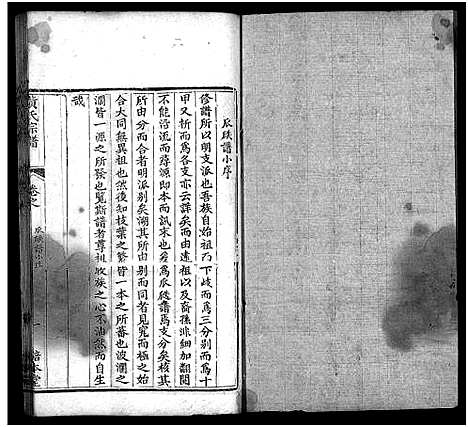 瓜瓞譜小序
修譜所以明支派也吾族自始祖乃下歧而爲三分别爲十
甲又析而爲各支亦云詳矣而由遠祖以及裔孫非細加翻閱
不能沿流而尋源即本而訊末也今爲瓜瓞譜而支分矣核其
所由分而合者明派别矣溯其所由别而同者見究而極之始
合大同無異祖也然後知枝葉之繁皆一本之所蕃也波瀾之
濶皆一源之所衍也覽斯譜者尊祖收族之心不油然而自生
哉
黄氏宗譜
卷之
瓜瓞譜小序
一
敦本堂